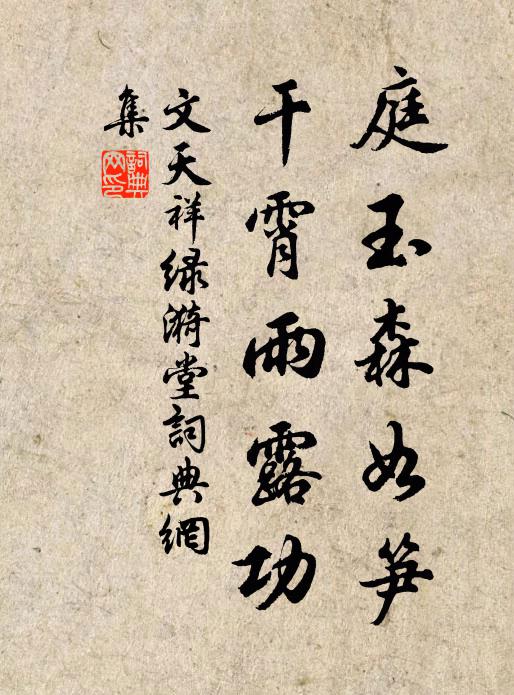 庭玉森如笋
干霄雨露功
文天祥绿漪堂詞典網
集
詞典網印